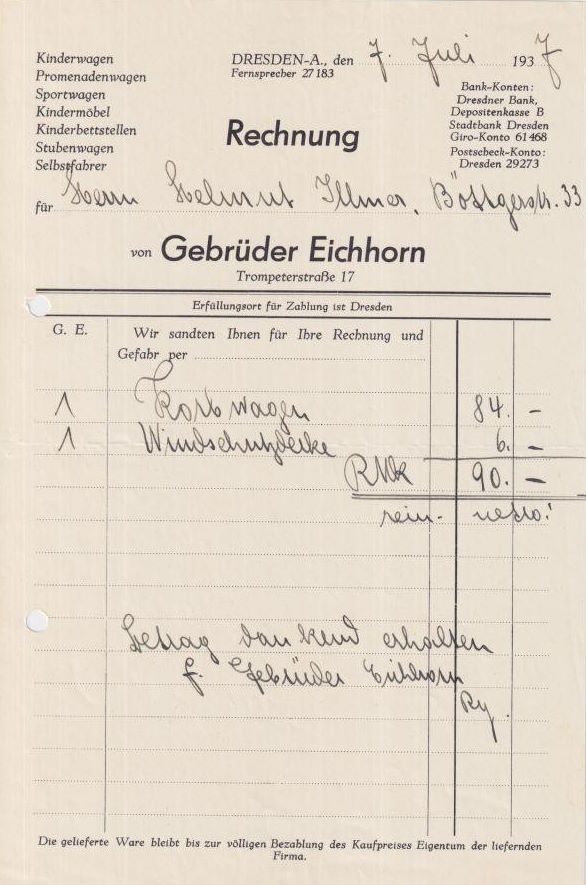 Kinderwagen
Promenadenwagen
Sportwagen
Kindermöbel
Kinderbettstellen
Stubenwagen
Selbstfahrer
DRESDEN-A., den 7. Juli 1937
Fernsprecher 27183
Bank-Konten:
Dresdner Bank,
Depositenkasse B
Stadtbank Dresden
Giro-Konto 61468
Postscheck-Konto:
Dresden 29273
Rechnung
für Herrn Helmut Illmer, Böttgerstr. 33
von Gebrüder Eichhorn
Trompeterstraße 17
Erfüllungsort für Zahlung ist Dresden
G. E. Wir sandten Ihnen für Ihre Rechnung und
Gefahr per
1 Korbwagen 84. –
1 Windschutzdecke 6. –
RMk 90. –
rein- netto!
Betrag dankend erhalten
f. Gebrüder Eichhorn
Die gelieferte Ware bleibt bis zur völligen Bezahlung des Kaufpreises Eigentum der liefernden
Firma.